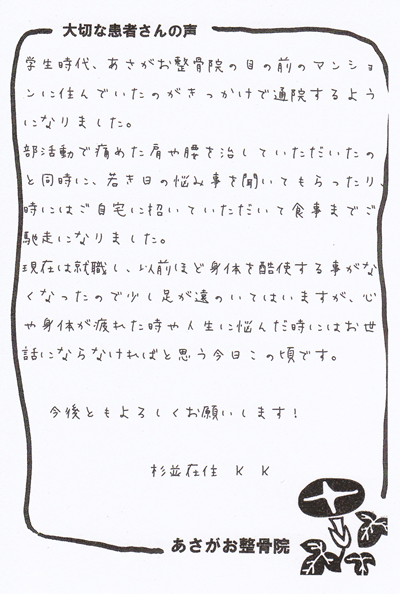 大切な患者さんの声
学生時代、あさがお整骨院の目の前のマンショ
ンに住んでいたのがきっかけで通院するよう
になりました。
部活動で痛めた肩や腰を治していただいたの
と同時に、若き日の悩み事を聞いてもらったり、
時にはご自宅に招いていただいて食事までご
馳走になりました。
現在は就職し、以前ほど身体を酷使する事がな
くなったので少し足が遠のいてはいますが、心
や身体が疲れた時や人生に悩んだ時にはお世
話にならなければと思う今日この頃です。
今後ともよろしくお願いします！
杉並在住 K K
あさがお整骨院